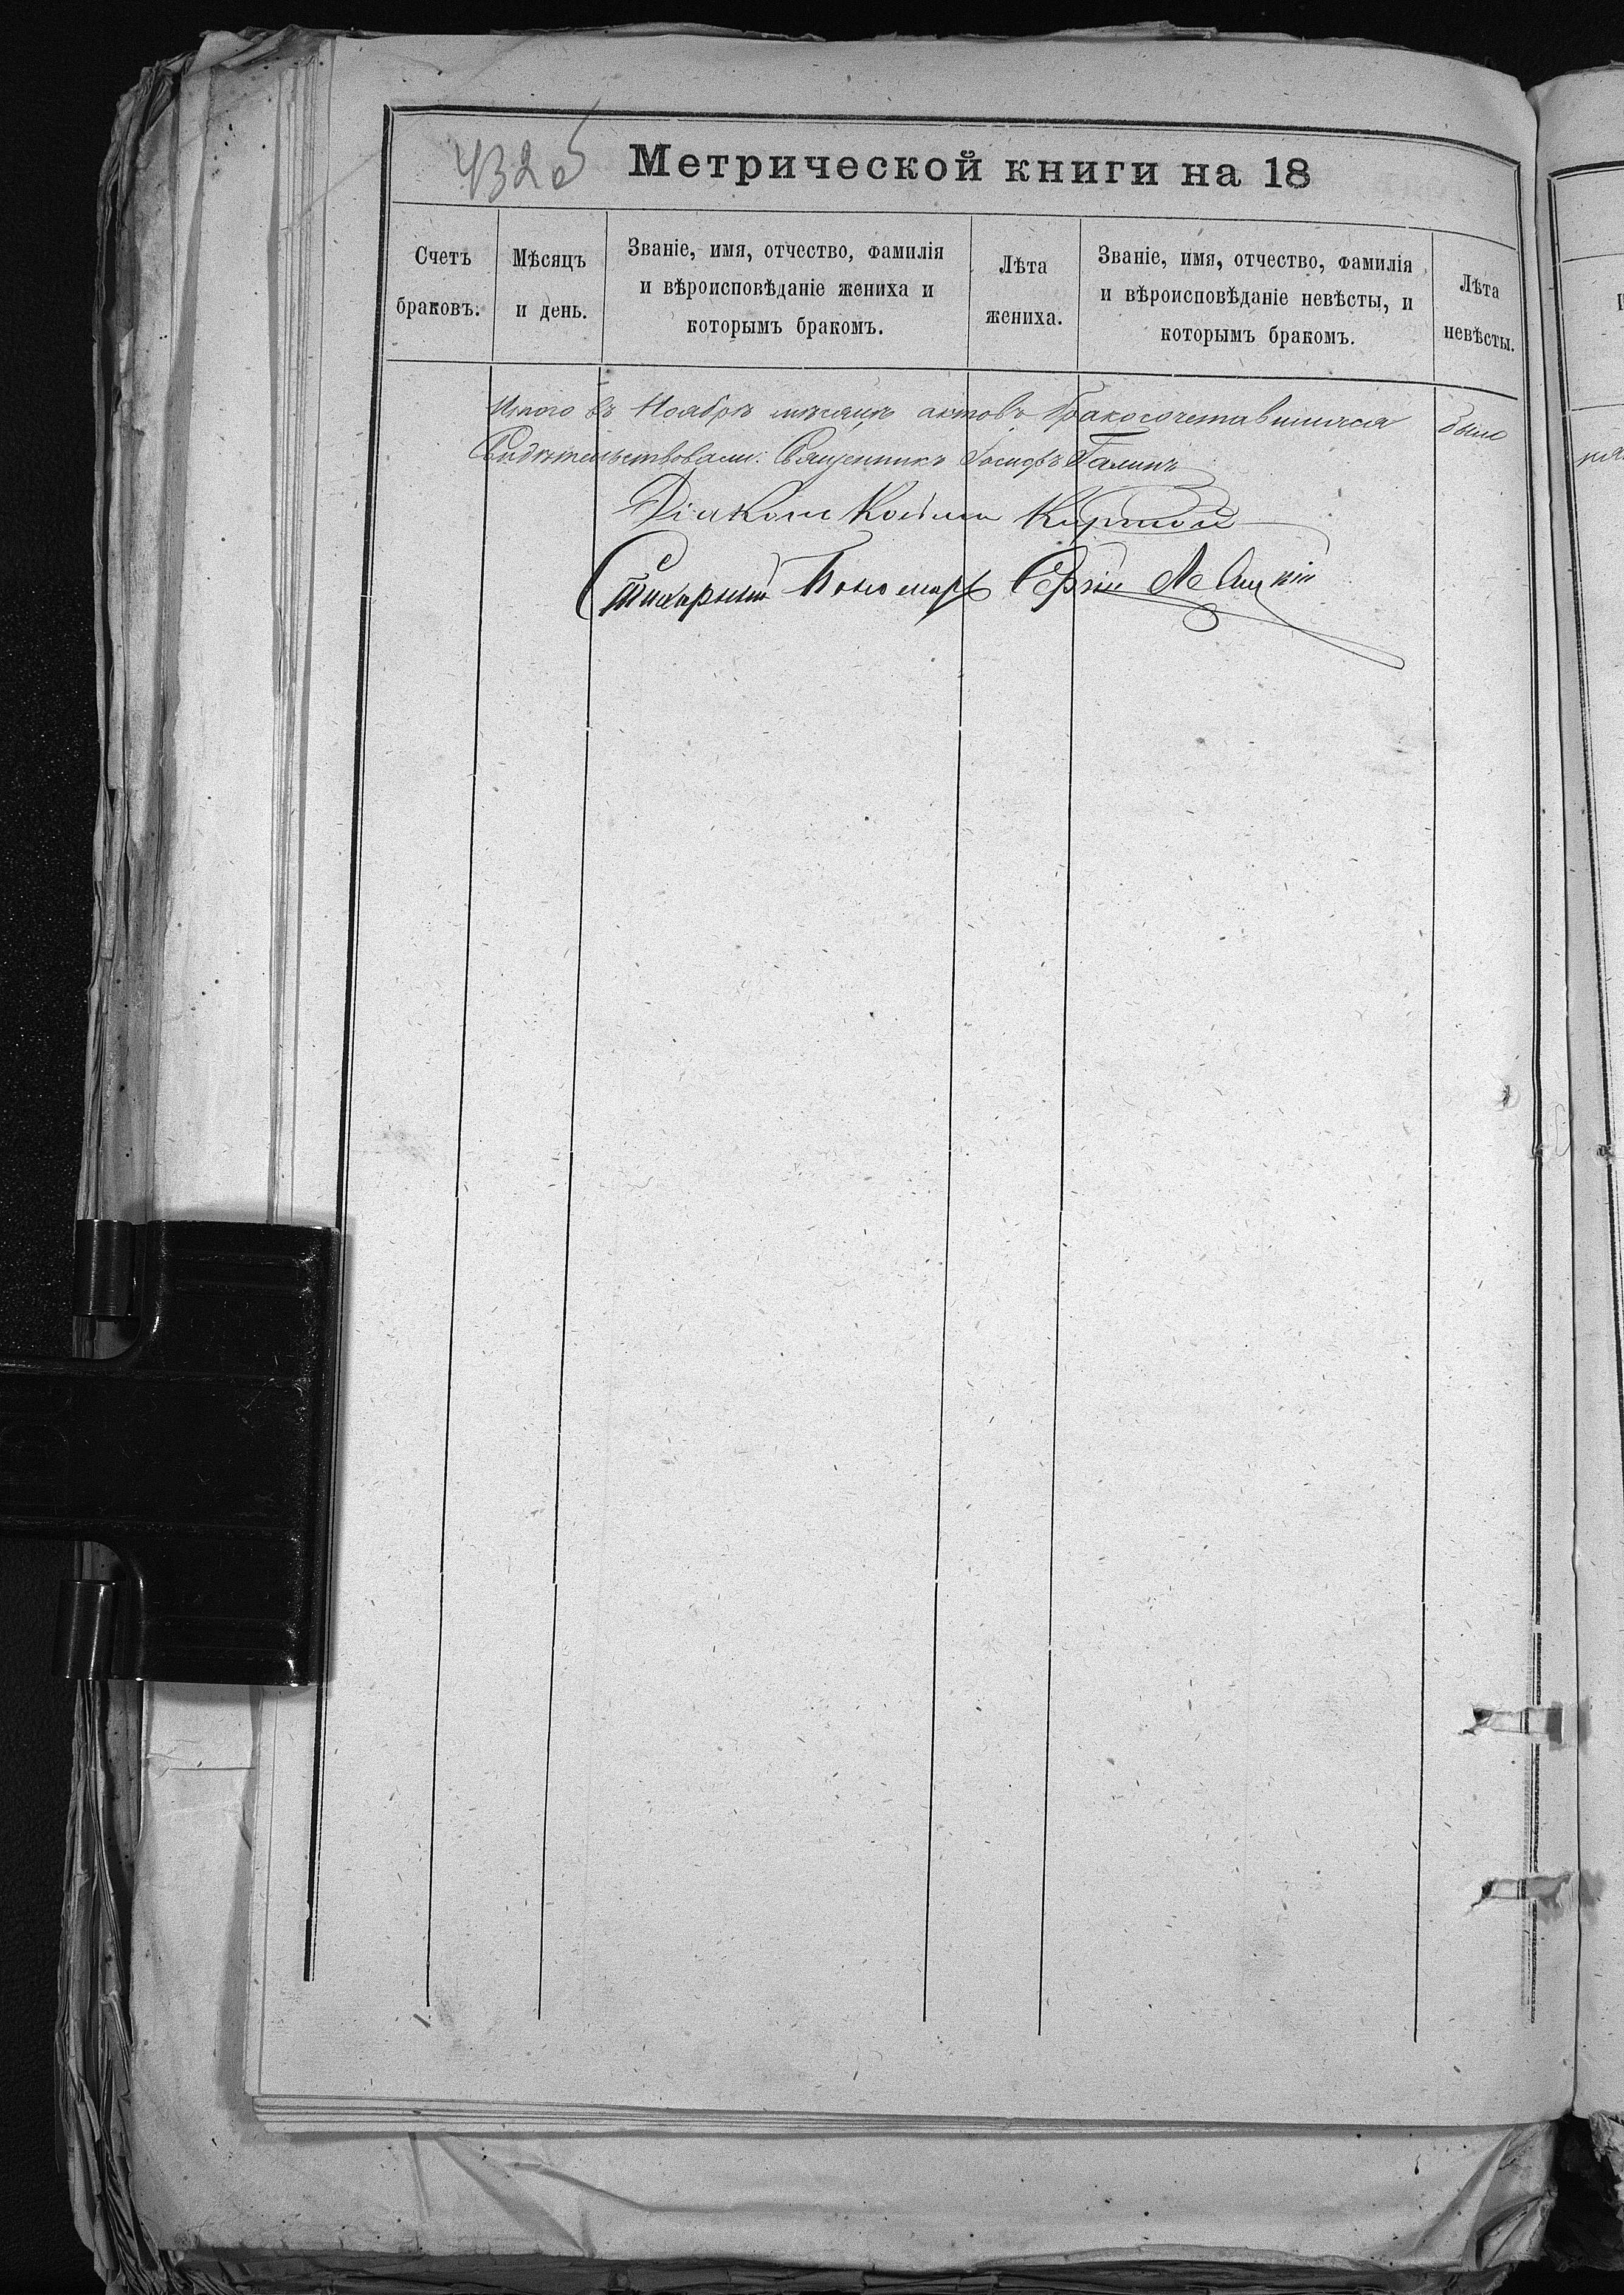 432об
Метрической книги на 18
Счетъ браковъ.
Мѣсяцъ и день.
Званіе, имя, отчество, фамилія и вѣроисповѣданіе жениха и которымъ бракомъ.
Лѣта жениха.
Званіе, имя, отчество, фамилія и вѣроисповѣданіе невѣсты, и которымъ бракомъ.
Лѣта невѣсты.
Итого въ Ноябрѣ мѣсяцѣ актовъ бракосочетавшихся было
Свидѣтельствовали: Священникъ Іосифъ Галинъ
Діаконъ Косьма
Стихарный Пономарь